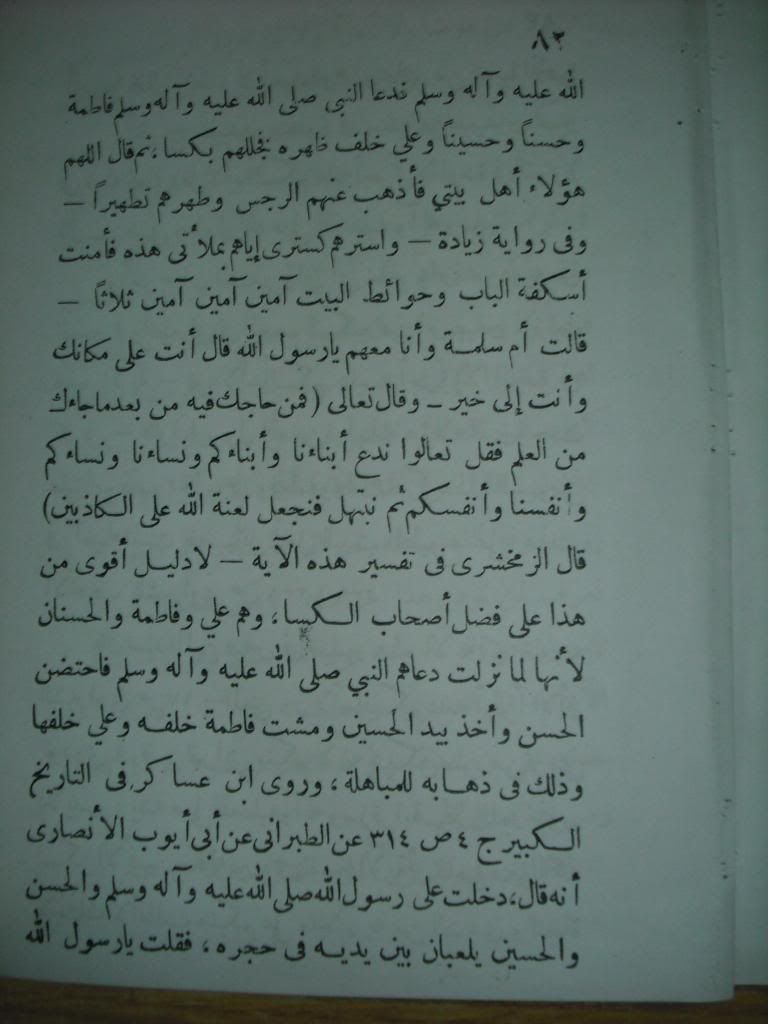 ٨٢
الله عليه وآله وسلم فدعا النبي صلى الله عليه وآله وسلم فاطمة
وحسناً وحسيناً وعلي خلف ظهره فجللهم بكساء، ثم قال اللهم
هؤلاء أهل بيتي فأذهب عنهم الرجس وطهرهم تطهيراً –
وفى رواية زيادة – واسترهم كسترى إياهم بملأتى هذه فأمنت
أسكفة الباب وحوائط البيت آمين آمين آمين ثلاثا –
قالت أم سلمة وأنا معهم يارسول الله قال أنت على مكانك
وأنت إلى خير – وقال تعالى (فمن حاجك فيه من بعد ماجاءك
من العلم فقل تعالوا ندع أبناءنا وأبناءكم ونساءنا ونساءكم
وأنفسنا وأنفسكم ثم نبتهل فنجعل لعنة الله على الكاذبين)
قال الزمخشرى فى تفسير هذه الآية – لادليل أقوى من
هذا على فضل أصحاب الكساء، وهم علي وفاطمة والحسنان
لأنها لما نزلت دعاهم النبي صلى الله عليه وآله وسلم فاحتضن
الحسن وأخذ بيد الحسين ومشت فاطمة خلفه وعلي خلفها
وذلك فى ذهابه للمباهلة، وروى ابن عساكر فى التاريخ
الكبير ج ٤ ص ٣١٤ عن الطبرانى عن أبى أيوب الأنصارى
أنه قال، دخلت على رسول الله صلى الله عليه وآله وسلم والحسن
والحسين يلعبان بين يديه فى حجره، فقلت يارسول الله